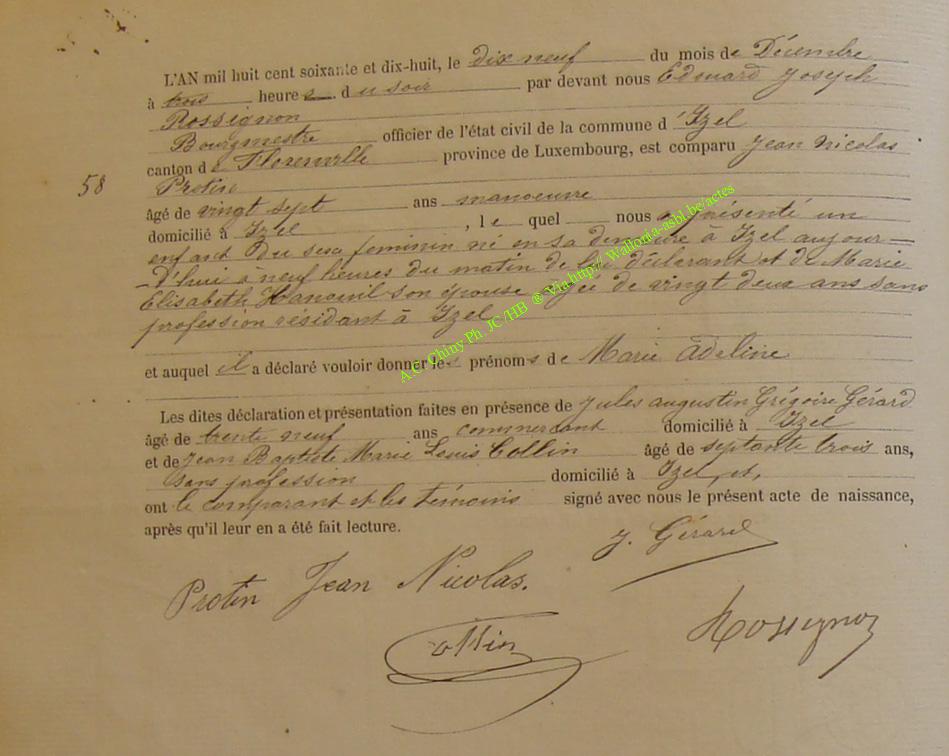 L'AN mil huit cent soixante et dix-huit, le dix neuf du mois de Décembre
à trois heures du soir par devant nous Edmard Joseph
Rossignon
Bourgmestre officier de l'état civil de la commune d'Izel
canton de Florenville province de Luxembourg, est comparu Jean Nicolas
58 Protin
âgé de vingt sept ans manoeuvre
domicilié à Izel, le quel nous a présenté un
enfant du sexe feminin né en sa demeure à Izel aujour=
-d'hui à neuf heures du matin de lui déclarant et de Marie
Elisabeth son épouse agée de vingt deux ans sans
profession résidant à Izel
et auquel il a déclaré vouloir donner les prénoms de Marie Adeline
Les dites déclaration et présentation faites en présence de Jules Augustin Grégoire Gérard
âgé de trente neuf ans commercant domicilié à Izel
et de Jean Baptiste Marie Louis Collin âgé de septante trois ans,
sans profession domicilié à Izel, et,
ont le comparant et les témoins signé avec nous le présent acte de naissance,
après qu'il leur en a été fait lecture.
J. Gérard
Protin Jean Nicolas.
Collin
Rossignon
A.G. Chiny Ph. JC /HB ® Via http:// Wallonia-asbl.be/actes